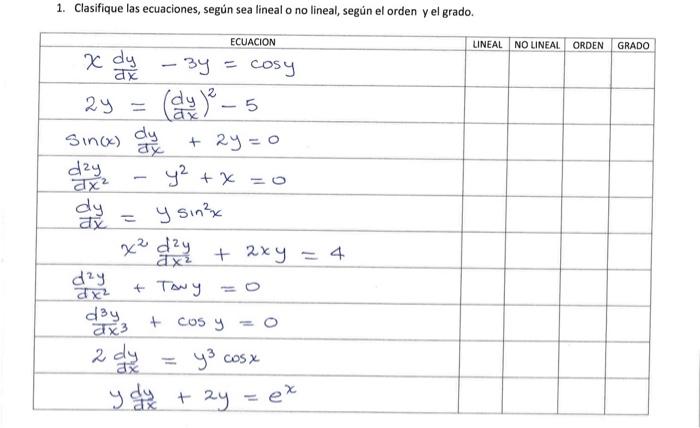 1. Clasifique las ecuaciones, según sea lineal o no lineal, según el orden y el grado.
ECUACION LINEAL NO LINEAL ORDEN GRADO
x dy/dx - 3y = cosy
2y = (dy/dx)² - 5
Sin(x) dy/dx + 2y = 0
d²y/dx² - y² + x = 0
dy/dx = y sin²x
x² d²y/dx² + 2xy = 4
d²y/dx² + Tan y = 0
d³y/dx³ + cos y = 0
2 dy/dx = y³ cosx
y dy/dx + 2y = eˣ